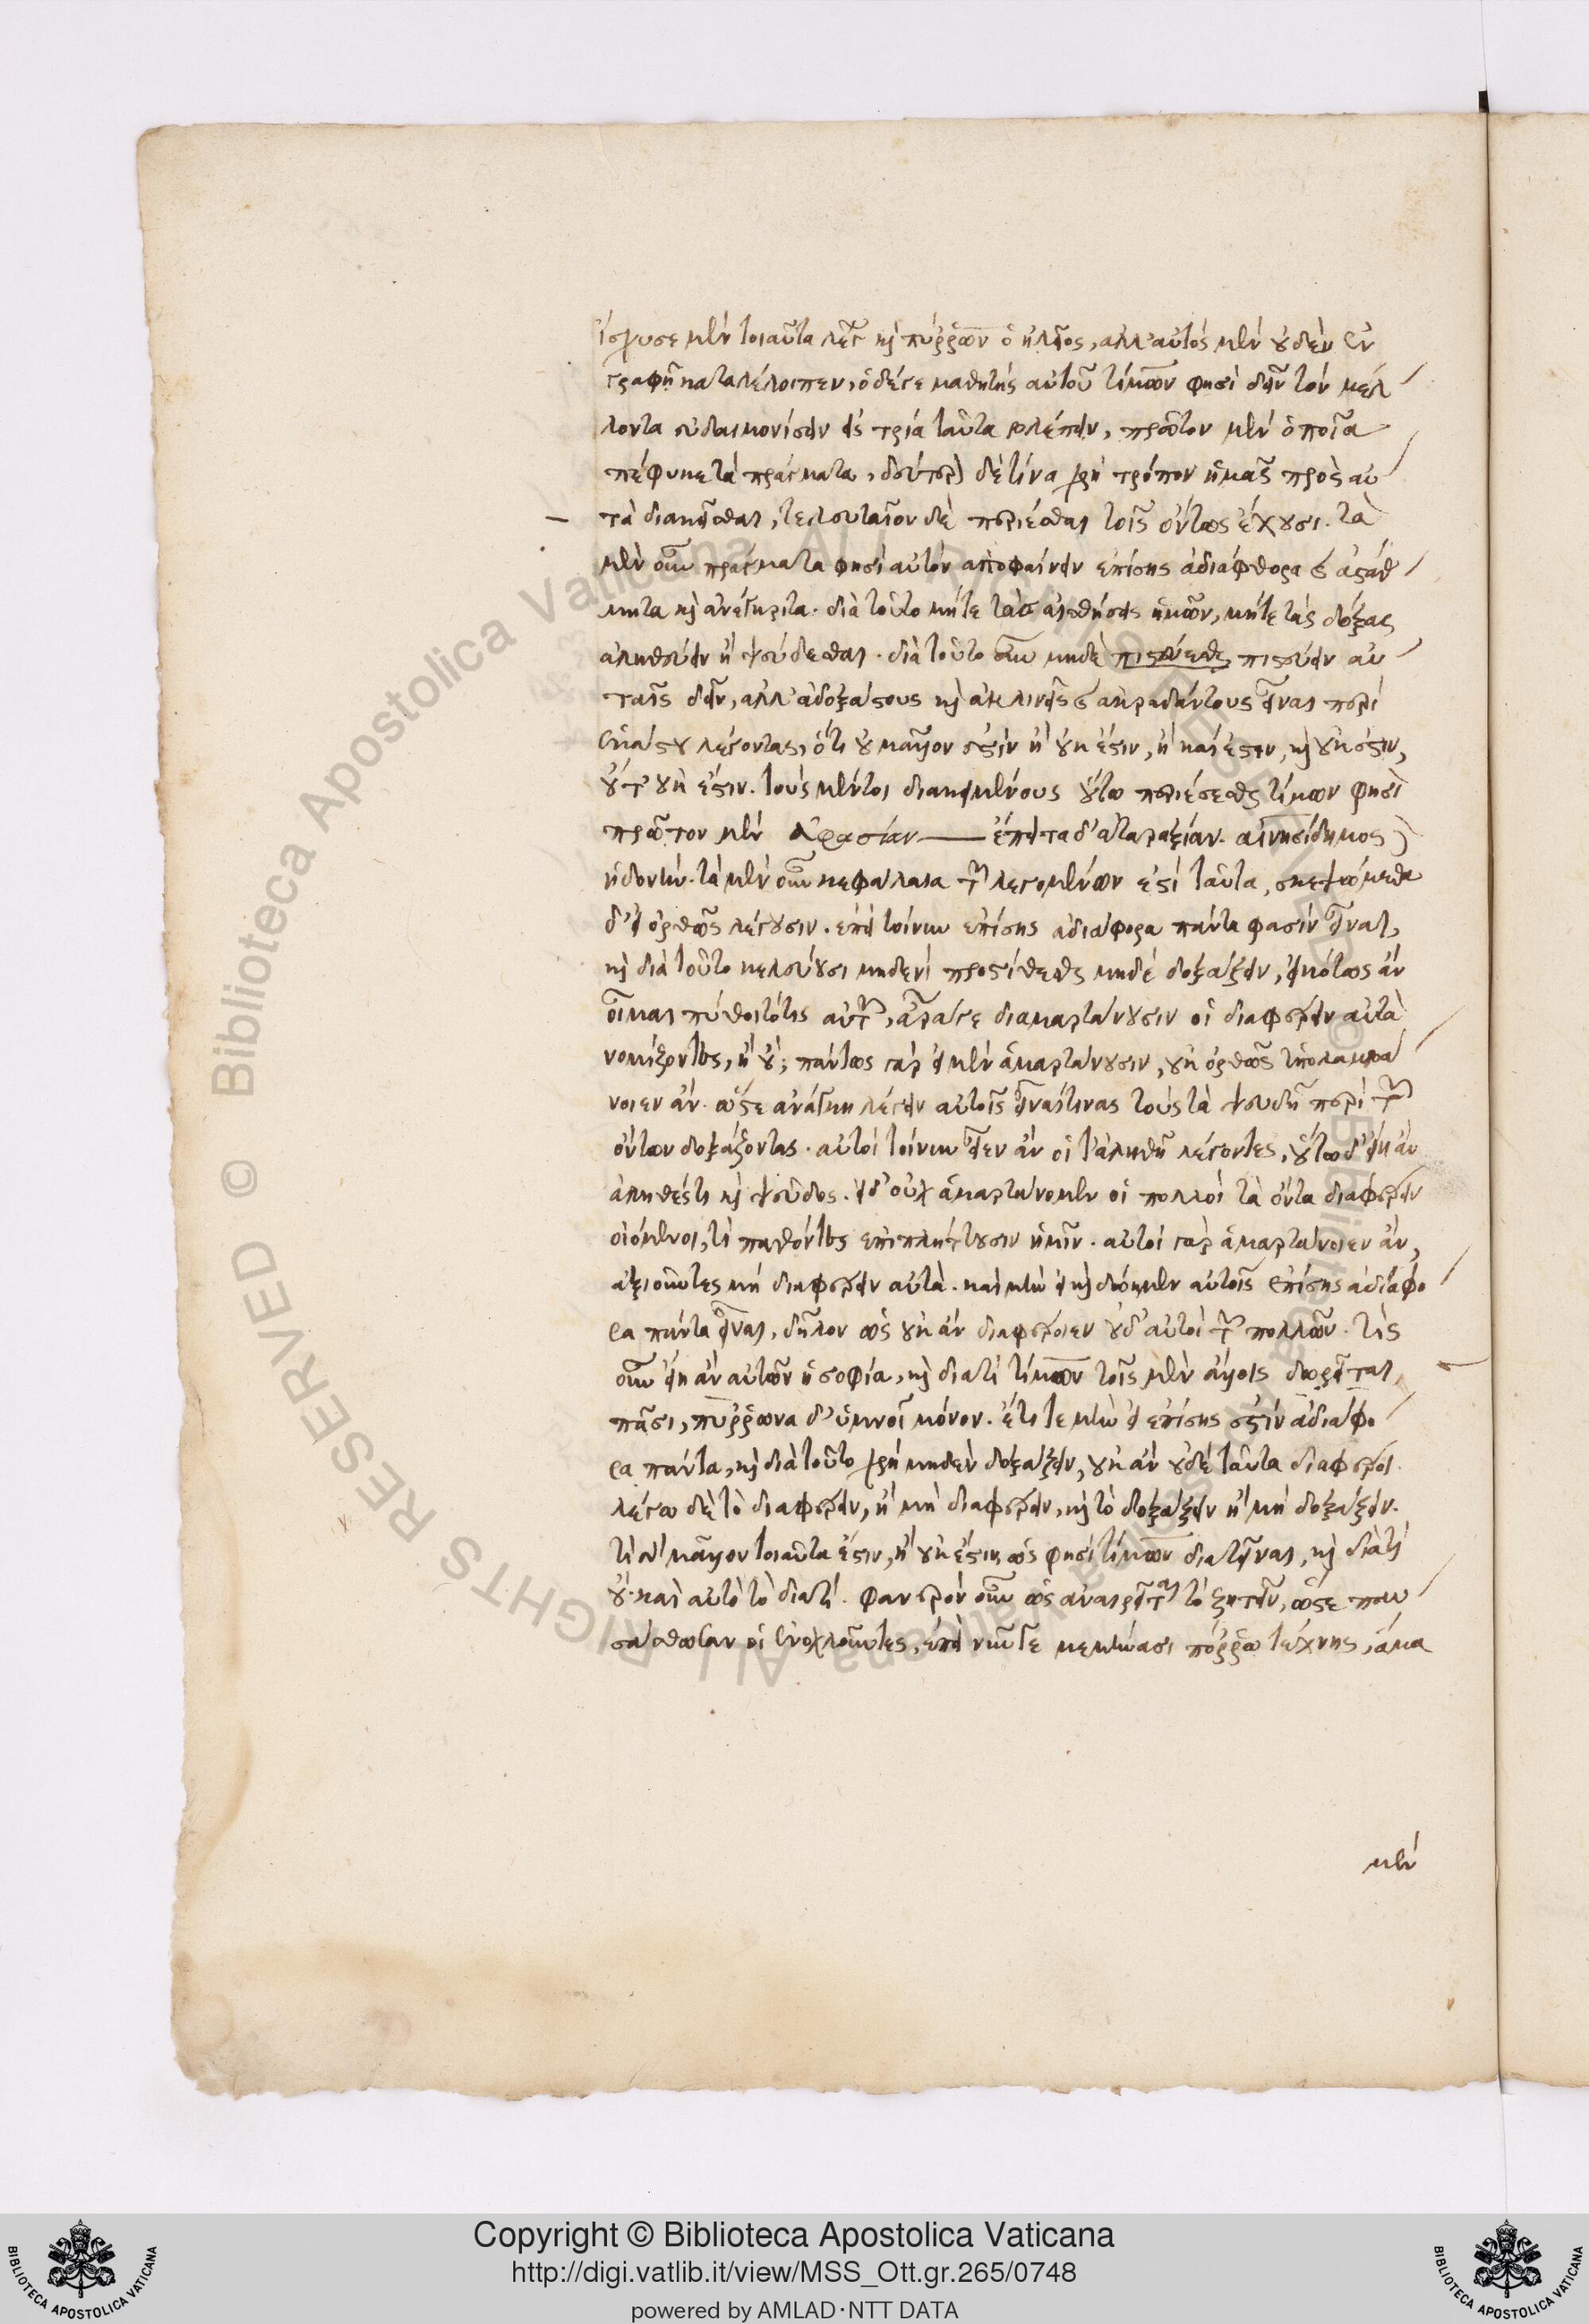 ἴσχυσε μὲν τοιαῦτα λέγ καὶ πύῤῥων ὁ ἠλεῖος, ἀλλ' αὐτὸς μὲν οὐδὲν ἐν
γραφῇ καταλέλοιπεν, ὁ δέγε μαθητὴς αὐτοῦ τίμων φησὶ δεῖν τὸν μέλ
λοντα εὐδαιμονίσειν εἰς τρία ταῦτα βλέπειν, πρῶτον μὲν ὁποῖα
πέφυκε τὰ πράγματα, δεύτερον δὲ τίνα χρὴ τρόπον ἡμᾶς πρὸς αὐ
τὰ διακεῖσθαι, τελευταῖον δὲ περιέσθαι τοῖς οὕτως ἔχουσι. τὰ
μὲν οὖν πράγματα φησὶ αὐτὸν ἀποφαίνειν ἐπίσης ἀδιάφθορα καὶ ἀστάθ
μητα καὶ ἀνέγκριτα. διὰ τοῦτο μήτε τὰς αἰσθήσεις ἡμῶν, μήτε τὰς δόξας
ἀληθεύειν ἢ ψεύδεσθαι. διὰ τοῦτο οὖν μηδὲ πιστεύεσθαι πιστεύειν αὐ
ταῖς δεῖν, ἀλλ' ἀδοξάστους καὶ ἀκλινεῖς καὶ ἀκραδάντους εἶναι περὶ
ἑκάστου λέγοντας, ὅτι οὐ μᾶλλον ἐστὶν ἢ οὐκ ἔστιν, ἢ καὶ ἔστιν, καὶ οὐκ ἔστιν,
οὔτ' οὐκ ἔστιν. τοὺς μέντοι διακειμένους οὕτω περιέσεσθαι τίμων φησὶ
πρῶτον μὲν ἀφασίαν — ἔπειτα δ' ἀταραξίαν. αἰνησίδημος
ἡδονήν. τὰ μὲν οὖν κεφάλαια τῶν λεγομένων ἐστὶ ταῦτα, σκεψώμεθα
δ' εἰ ὀρθῶς λέγουσιν. ἐπεὶ τοίνυν ἐπίσης ἀδιάφορα πάντα φασὶν εἶναι,
καὶ διὰ τοῦτο κελεύουσι μηδενὶ προστίθεσθαι μηδὲ δοξάζειν, εἰκότως ἂν
οἶμαι πύθοιτότις αὐτῶν, ἆράγε διαμαρτάνουσιν οἱ διαφέρειν αὐτὰ
νομίζοντες, ἢ οὔ; πάντως γὰρ εἰ μὲν ἁμαρτάνουσιν, οὐκ ὀρθῶς ὑπολαμβά
νοιεν ἄν. ὥστε ἀνάγκη λέγειν αὐτοῖς εἶναίτινας τοὺς τὰ ψευδῆ περὶ τῶν
ὄντων δοξάζοντας. αὐτοὶ τοίνυν εἶεν ἂν οἱ τἀληθῆ λέγοντες, οὕτω δ' εἴη ἂν
ἀληθέςτι καὶ ψεῦδος. εἰ δ' οὐχ ἁμαρτάνομεν οἱ πολλοὶ τὰ ὄντα διαφέρειν
οἰόμενοι, τί παθόντες ἐπιπλήττουσιν ἡμῖν. αὐτοὶ γὰρ ἁμαρτάνοιεν ἂν,
ἀξιοῦντες μὴ διαφέρειν αὐτά. καὶ μὴν εἰ καὶ δώημεν αὐτοῖς ἐπίσης ἀδιάφο
ρα πάντα εἶναι, δῆλον ὡς οὐκ ἂν διαφέροιεν οὐδ' αὐτοὶ τῶν πολλῶν. τίς
οὖν εἴη ἂν αὐτῶν ἡ σοφία, καὶ διατί τίμων τοῖς μὲν ἄλλοις λοιδορεῖται
πᾶσι, πύῤῥωνα δ' ὑμνοῖ μόνον. ἔτι τε μὴν εἰ ἐπίσης ἐστὶν ἀδιάφο
ρα πάντα, καὶ διὰ τοῦτο χρὴ μηδὲν δοξάζειν, οὐκ ἂν οὐδὲ ταῦτα διαφέροι.
λέγω δὲ τὸ διαφέρειν, ἢ μὴ διαφέρειν, καὶ τὸ δοξάζειν ἢ μὴ δοξάζειν.
τί μᾶλλον τοιαῦτα ἔστιν, ἢ οὐκ ἔστιν, ὡς φησὶ τίμων διατεῖναι, καὶ διατί
οὔ. καὶ αὐτὸ τὸ διατί. φανερὸν οὖν ὡς ἀναιρεῖται τὸ ζητεῖν, ὥστε παυ
σάσθωσαν οἱ ἐνοχλοῦντες, ἐπεὶ νῦν γε μεμήνασι πόῤῥω τέχνης, ἅμα
μὲν